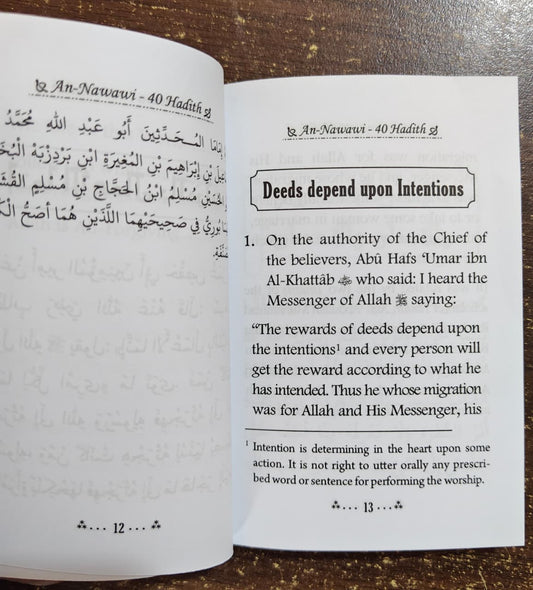 An-Nawawi - 40 Hadith
إِمَامَا الْمُحَدِّثِينَ أَبُو عَبْدِ اللهِ مُحَمَّدُ
بْنِ إِبْرَاهِيمَ بْنِ الْمُغِيرَةِ ابْنِ بَرْدِزْبَهْ
مُسْلِمُ ابْنُ الْحَجَّاجِ بْنِ مُسْلِمٍ
فِي صَحِيحَيْهِمَا اللَّذَيْنِ هُمَا أَصَحُّ
12
An-Nawawi - 40 Hadith
Deeds depend upon Intentions
1. On the authority of the Chief of
the believers, Abû Hafs ‘Umar ibn
Al-Khattâb who said: I heard the
Messenger of Allah ﷺ saying:
“The rewards of deeds depend upon
the intentions¹ and every person will
get the reward according to what he
has intended. Thus he whose migration
was for Allah and His Messenger, his
¹ Intention is determining in the heart upon some
action. It is not right to utter orally any prescri-
bed word or sentence for performing the worship.
13